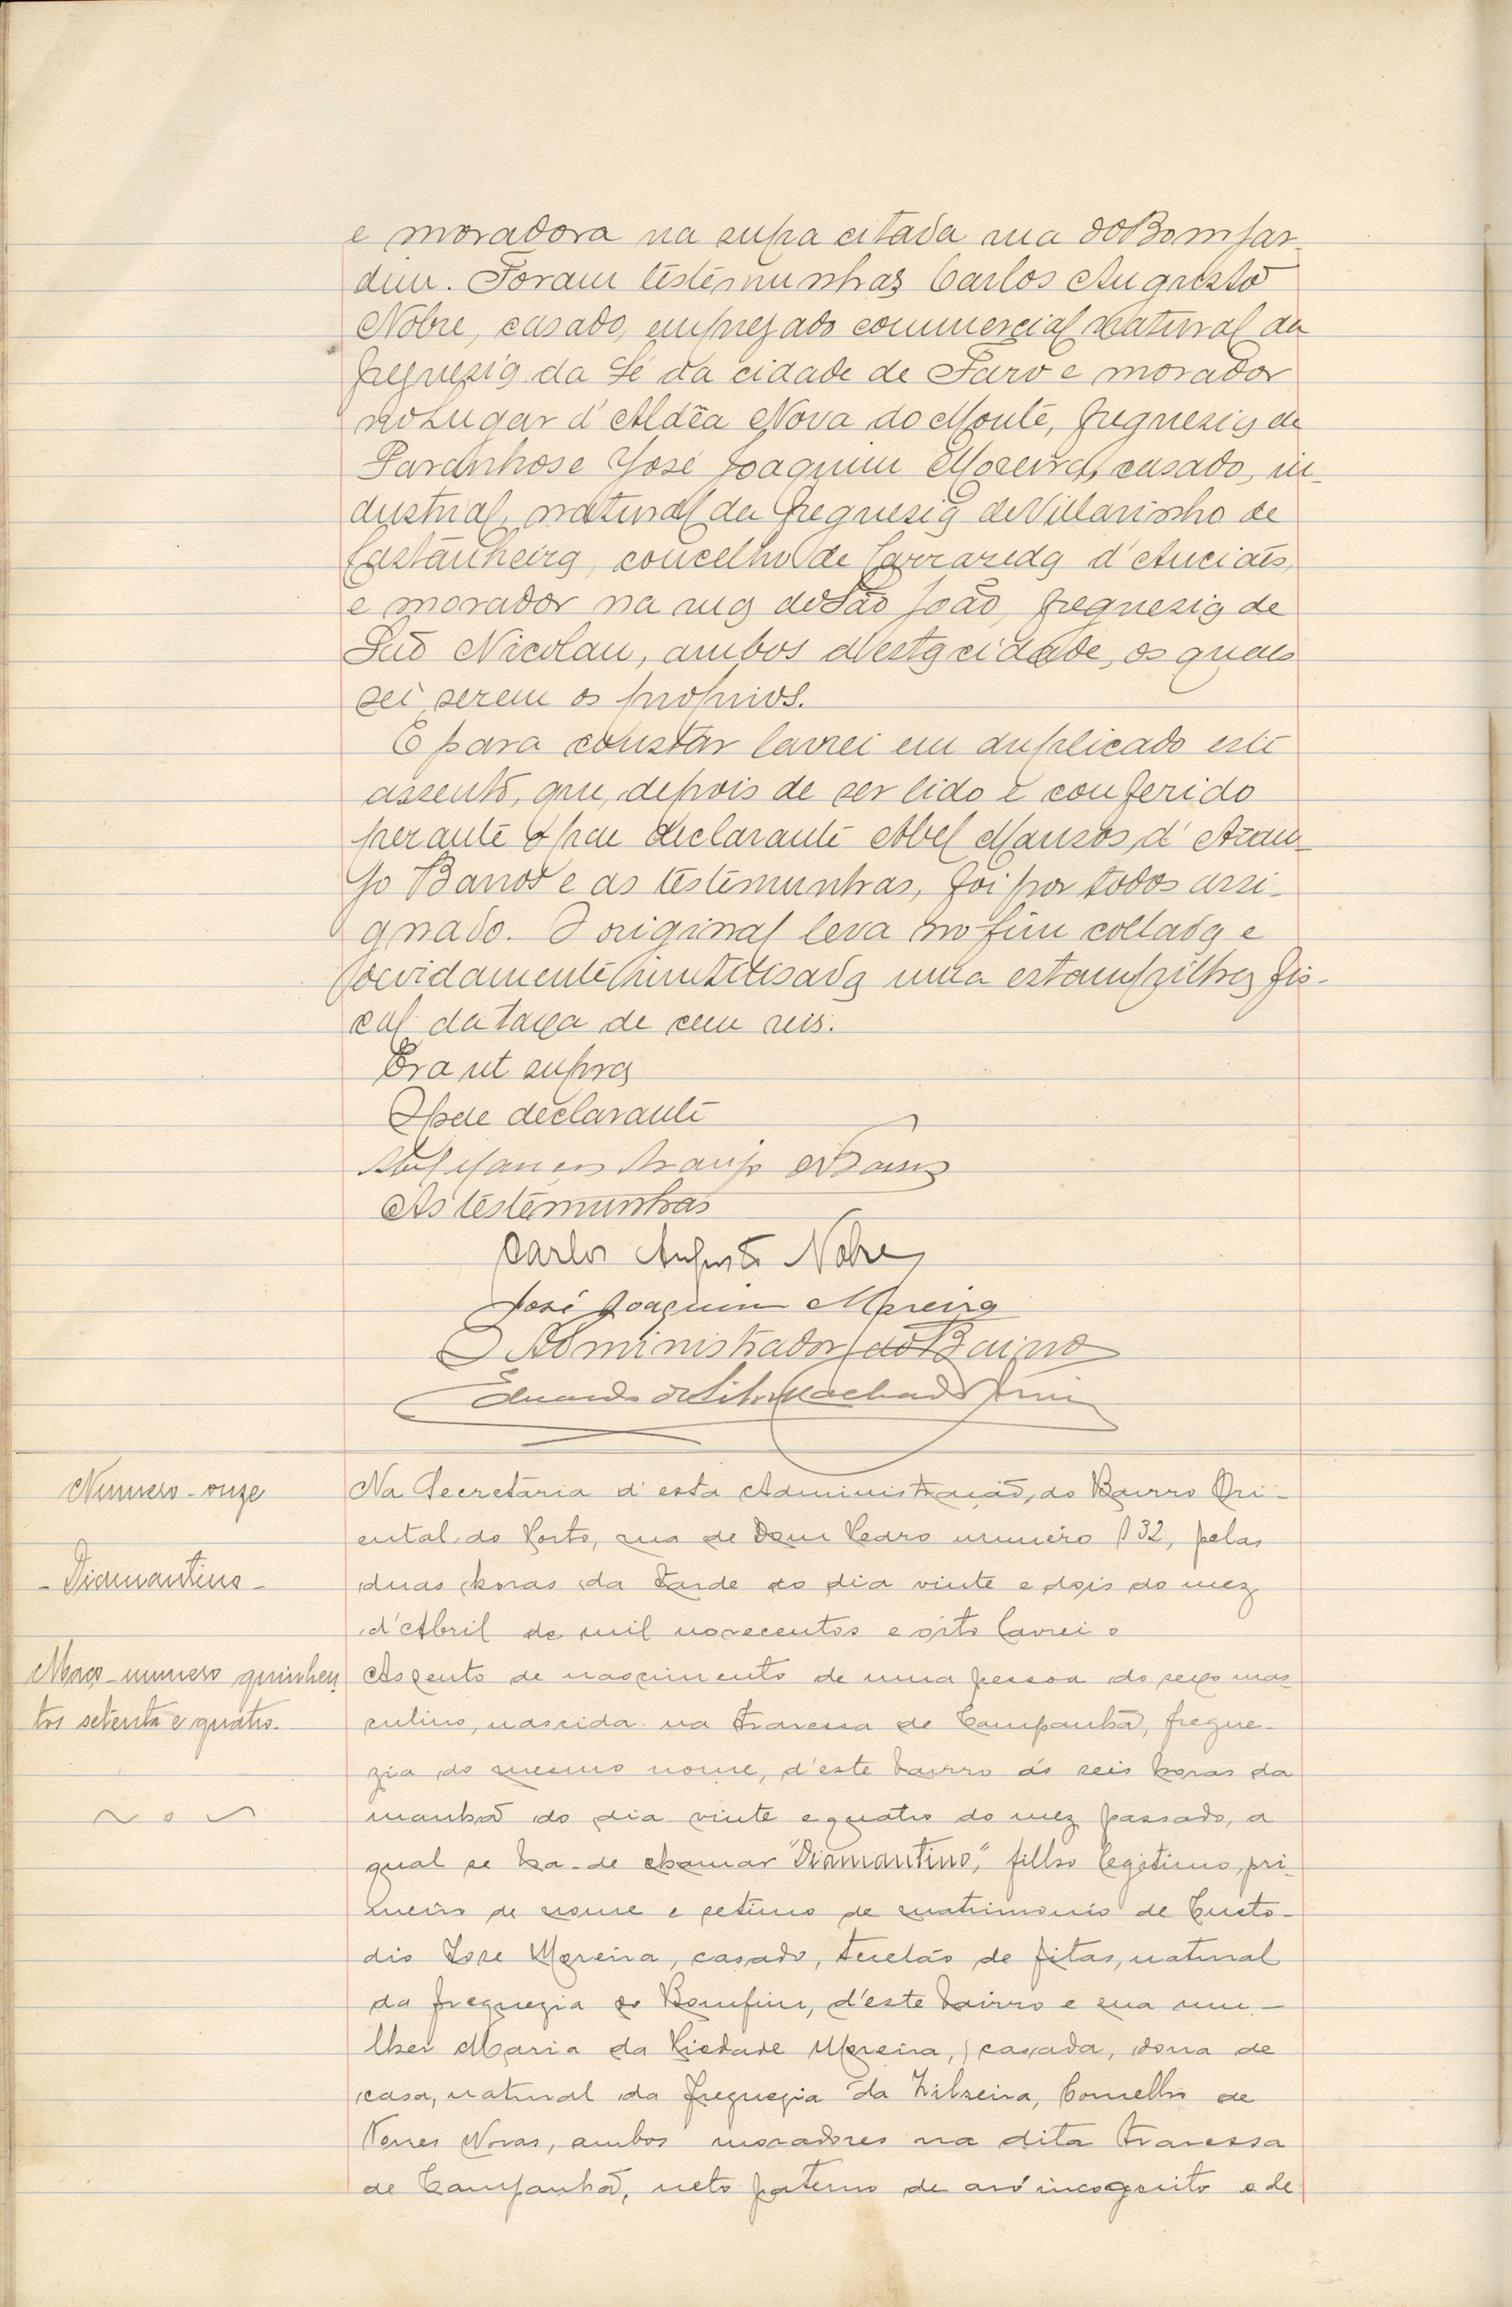 e moradora na supra citada rua do Bomjar-
dim. Foram testemunhas Carlos Augusto
Nobre, casado, empregado commercial natural da
freguezia da Sé da cidade de Faro e morador
no Lugar d'Aldêa Nova do Monte, freguezia de
Paranhos e José Joaquim Moreira, casado, in-
dustrial, natural da freguezia de Villarinho de
Castanheira, concelho de Carrazeda d'Anciães,
e morador na rua de São João, freguezia de
São Nicolau, ambos d'esta cidade, os quaes
sei serem os proprios.
E para constar lavrei em duplicado este
assento, que, depois de ser lido e conferido
perante o pae declarante Abel Mansos d'Arau-
jo Banos e as testemunhas, foi por todos assi-
gnado. O original leva no fim collada e
devidamente inutilisada uma estampilha fis-
cal da taxa de cem reis.
Era ut supra
O pae declarante
As testemunhas
Carlos Augusto Nobre
José Joaquim Moreira
O Administrador do Bairro
Eduardo da Silva Machado
Numero - onze
- Diamantino -
Maço - numero quinhen
tos setenta e quatro.
Na Secretaria d'esta Administração, do Bairro Ori-
ental do Porto, rua de Dom Pedro numero 132, pelas
duas horas da tarde do dia vinte e dois do mez
d'Abril de mil novecentos e oito lavrei o
Assento de nascimento de uma pessoa do sexo mas
culino, nascida na Travessa de Campanhã, fregue-
zia do mesmo nome, d'este bairro ás seis horas da
manhã do dia vinte e quatro do mez passado, a
qual se ha-de chamar "Diamantino," filho legitimo, pri-
meiro de nome e setimo de matrimonio de Custo-
dio José Moreira, casado, tecelão de fitas, natural
da freguezia do Bomfim, d'este bairro e sua mu-
lher Maria da Piedade Moreira, casada, dona de
casa, natural da freguezia da Zibreira, Concelho de
Torres Novas, ambos moradores na dita travessa
de Campanhã, neto paterno de avô incognito e de